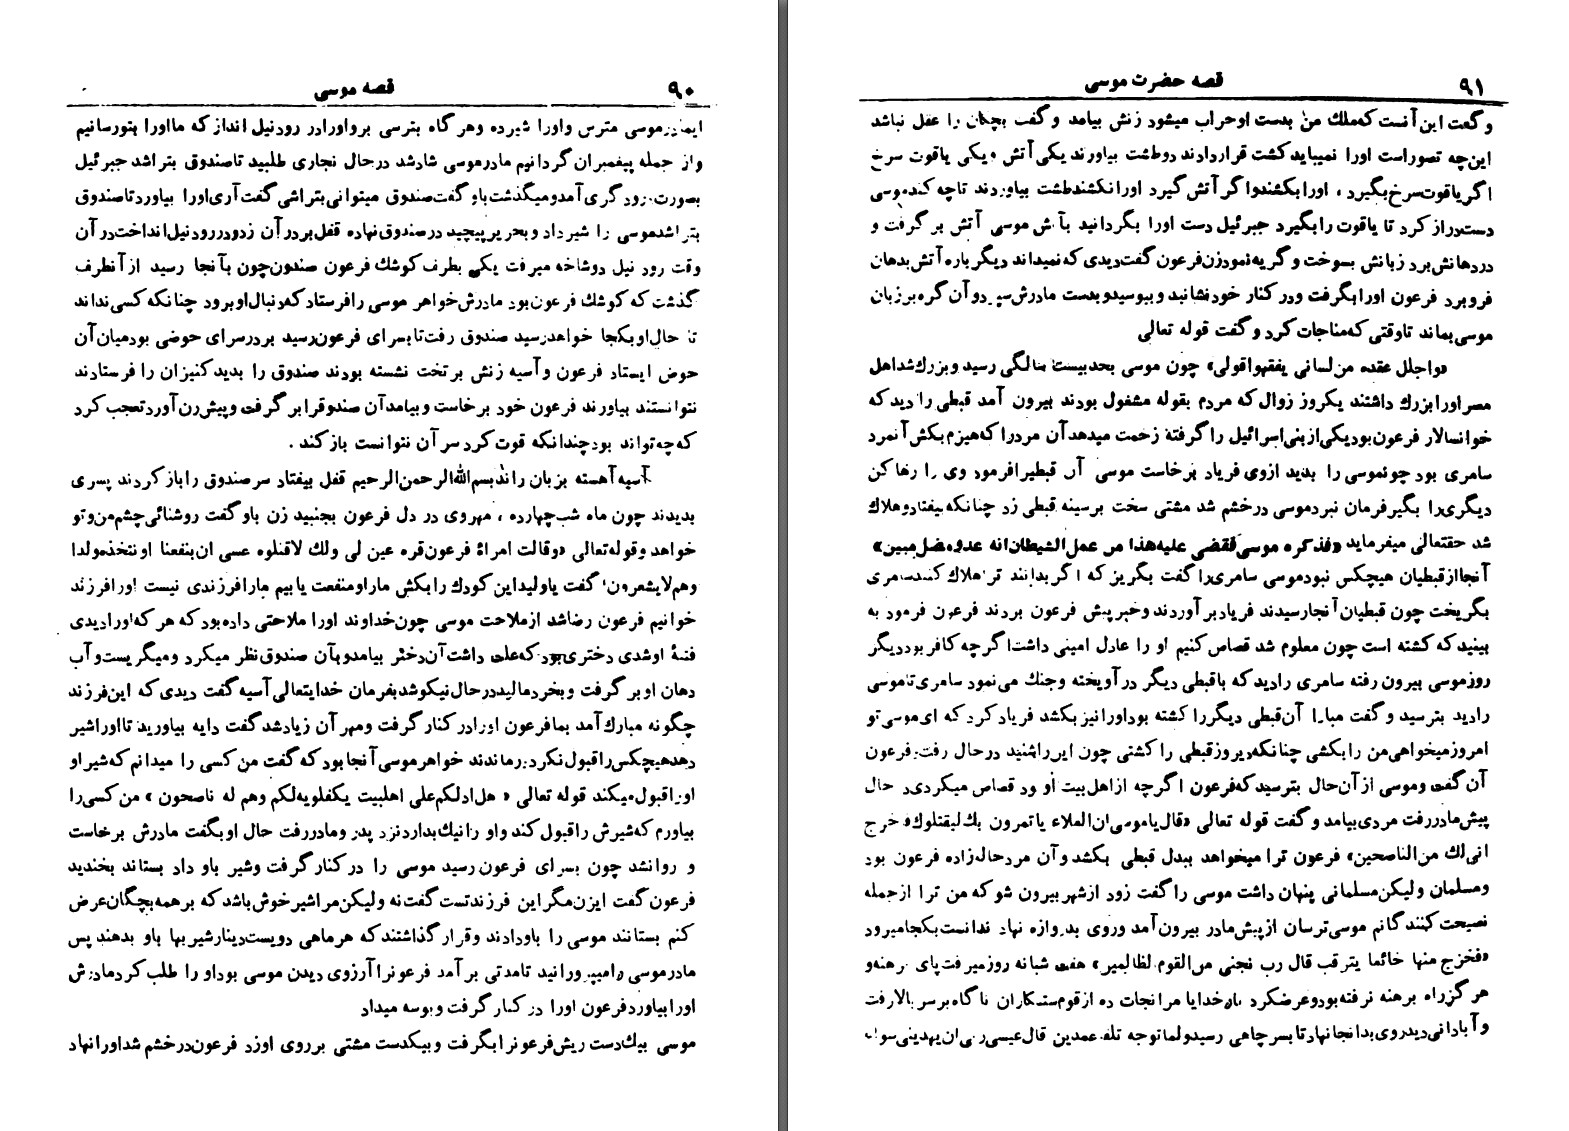 قصه موسی ۹۰
ایمادر موسی مترس واورا شیرده وهر گاه بترسی برواورادر رودنیل انداز که مااورا بتورسانیم
واز جمله پیغمبران گردانیم مادرموسی شادشد درحال نجاری طلبید تاصندوق بتراشد جبرئیل
بصورت درود گری آمدو میگذشت باو گفت صندوق میتوانی بتراشی گفت آری اورا بیاورد تاصندوق
بتراشد موسی را شیرداد و بحریر پیچید در صندوق نهاده قفل بردرآن زدودررود نیل انداخت در آن
وقت رود نیل دوشاخه میرفت یکی بطرف کوشك فرعون صندوق چون بآنجا رسید از آنطرف
گذشت که کوشك فرعون بود مادرش خواهر موسی را فرستاد که دنبال او برود چنانکه کسی نداند
تا حال او بکجا خواهد رسید صندوق رفت تا بسرای فرعون رسید بردرسرای حوضی بود میان آن
حوض ایستاد فرعون و آسیه زنش بر تخت نشسته بودند صندوق را بدید کنیزان را فرستادند
نتوانستند بیاورند فرعون خود برخاست و بیامد آن صندوقرا بر گرفت و پیش زن آورد تعجب کرد
که چه تواند بود چندانکه قوت کرد سر آن نتوانست باز کند .
آسیه آهسته بزبان راند بسم الله الرحمن الرحیم قفل بیفتاد سر صندوق را باز کردند پسری
بدیدند چون ماه شب چهارده ، مهروی در دل فرعون بجنبید زن باو گفت روشنائی چشم من و تو
خواهد و قوله تعالی «وقالت امرأة فرعون قره عین لی ولك لاقتلوه عسی ان ینفعنا او نتخذه ولدا
وهم لایشعرون» گفت یا ولید این کودك را بکش مارا و منفعت یا بیم مارا فرزندی نیست اورا فرزند
خوانیم فرعون رضا شد از ملاحت موسی چون خداوند اورا ملاحتی داده بود که هر که اورا دیدی
فتنهٔ او شدی دختری بود که علت داشت آن دختر بیامد و بآن صندوق نظر میکرد و میگریست و آب
دهان او بر گرفت و بخود مالید درحال نیکو شد بفرمان خدایتعالی آسیه گفت دیدی که این فرزند
چگونه مبارك آمد بما فرعون اورا در کنار گرفت و مهر آن زیاد شد گفت دایه بیاورید تا اورا شیر
دهد هیچکس را قبول نکرد درماندند خواهر موسی آنجا بود که گفت من کسی را میدانم که شیر او
اورا قبول میکند قوله تعالی « هل ادلکم علی اهلبیت یکفلونه لکم وهم له ناصحون » من کسی را
بیاورم که شیرش را قبول کند واو را نیك بدارد نزد پدر ومادر رفت حال او بگفت مادرش برخاست
و روانشد چون بسرای فرعون رسید موسی را در کنار گرفت وشیر باو داد بستاند بخندید
فرعون گفت ایزن مگر این فرزند تست گفت نه ولیکن مرا شیر خوش باشد که بر همه بچگان عرض
کنم بستانند موسی را باو دادند و قرار گذاشتند که هر ماهی دویست دینار شیربها باو بدهند پس
مادر موسی را میپرورانید تامدتی بر آمد فرعونرا آرزوی دیدن موسی بود او را طلب کرد مادرش
اورا بیاورد فرعون اورا در کنار گرفت و بوسه میداد
موسی بیك دست ریش فرعونرا بگرفت و بیکدست مشتی بر روی اوزد فرعون درخشم شد اورا نهاد
قصه حضرت موسی ۹۱
و گفت این آنست که ملك من بدست او خراب میشود زنش بیامد و گفت بچگان را عقل نباشد
این چه تصور است اورا نمیباید کشت قرار دادند دو طشت بیاورند یکی آتش و یکی یاقوت سرخ
اگر یاقوت سرخ بگیرد ، اورا بکشند واگر آتش گیرد اورا نکشند طشت بیاوردند تا چه کند موسی
دست دراز کرد تا یاقوت را بگیرد جبرئیل دست اورا بگردانید بآتش موسی آتش بر گرفت و
در دهانش برد زبانش بسوخت و گریه نمود زن فرعون گفت دیدی که نمیداند دیگر پاره آتش بدهان
فرو برد فرعون اورا بگرفت ودر کنار خود نشانید و ببوسید و بدست مادرش سپرد و آن گره بر زبان
موسی بماند تا وقتی که مناجات کرد و گفت قوله تعالی
«واحلل عقده من لسانی یفقهوا قولی» چون موسی بحد بیست سالگی رسید و بزرك شد اهل
مصر اورا بزرك داشتند یکروز زوال که مردم بقوله مشغول بودند بیرون آمد قبطی را دید که
خوانسالار فرعون بود یکی از بنی اسرائیل را گرفته زحمت میدهد آن مرد را که هیزم بکش آنمرد
سامری بود چو نموسی را بدید ازوی فریاد برخاست موسی آن قبطیرا فرمود وی را رها کن
دیگری را بگیر فرمان نبرد موسی درخشم شد مشتی سخت بر سینه قبطی زد چنانکه بیفتاد و هلاك
شد حقتعالی میفرماید «فذکره موسی فقضی علیه هذا من عمل الشیطان انه عدو مضل مبین»
آنجا از قبطیان هیچکس نبود موسی سامری را گفت بگریز که اگر بدانند ترا هلاك کنند سامری
بگریخت چون قبطیان آنجا رسیدند فریاد بر آوردند و خبر پیش فرعون بردند فرعون فرمود به
بینید که کشته است چون معلوم شد قصاص کنیم او را عادل امینی داشت اگر چه کافر بود دیگر
روز موسی بیرون رفته سامری را دید که با قبطی دیگر در آویخته وجنك می نمود سامری تا موسی
را دید بترسید و گفت مبارا آن قبطی دیگر را کشته بود اورا نیز بکشد فریاد کرد که ای موسی تو
امروز میخواهی من را بکشی چنانکه دیروز قبطی را کشتی چون این را شنید درحال رفت فرعون
آن گفت وموسی از آن حال بترسید که فرعون اگر چه از اهل بیت او بود قصاص میکردی در حال
پیش مادر رفت مردی بیامد و گفت قوله تعالی «قال یا موسی ان الملاء یاتمرون بك لیقتلوك فاخرج
انی لك من الناصحین» فرعون ترا میخواهد ببدل قبطی بکشد و آن مرد خاله زاده فرعون بود
ومسلمان ولیکن مسلمانی پنهان داشت موسی را گفت زود از شهر بیرون شو که من ترا از جمله
نصیحت کنندگانم موسی ترسان از پیش مادر بیرون آمد وروی بدروازه نهاد ندانست بکجا میرود
«فخرج منها خائفا یترقب قال رب نجنی من القوم الظالمین» هفت شبانه روز میرفت پای برهنه و
هر گز راه برهنه نرفته بود و عرضکرد بار خدایا مرا نجات ده از قوم ستمکاران ناگاه بر سر بالا رفت
و آبادانی دید روی بدانجا نهاد تا بسر چاهی رسید ولما توجه تلقاء مدین قال عیسی ربی ان یهدینی سواء